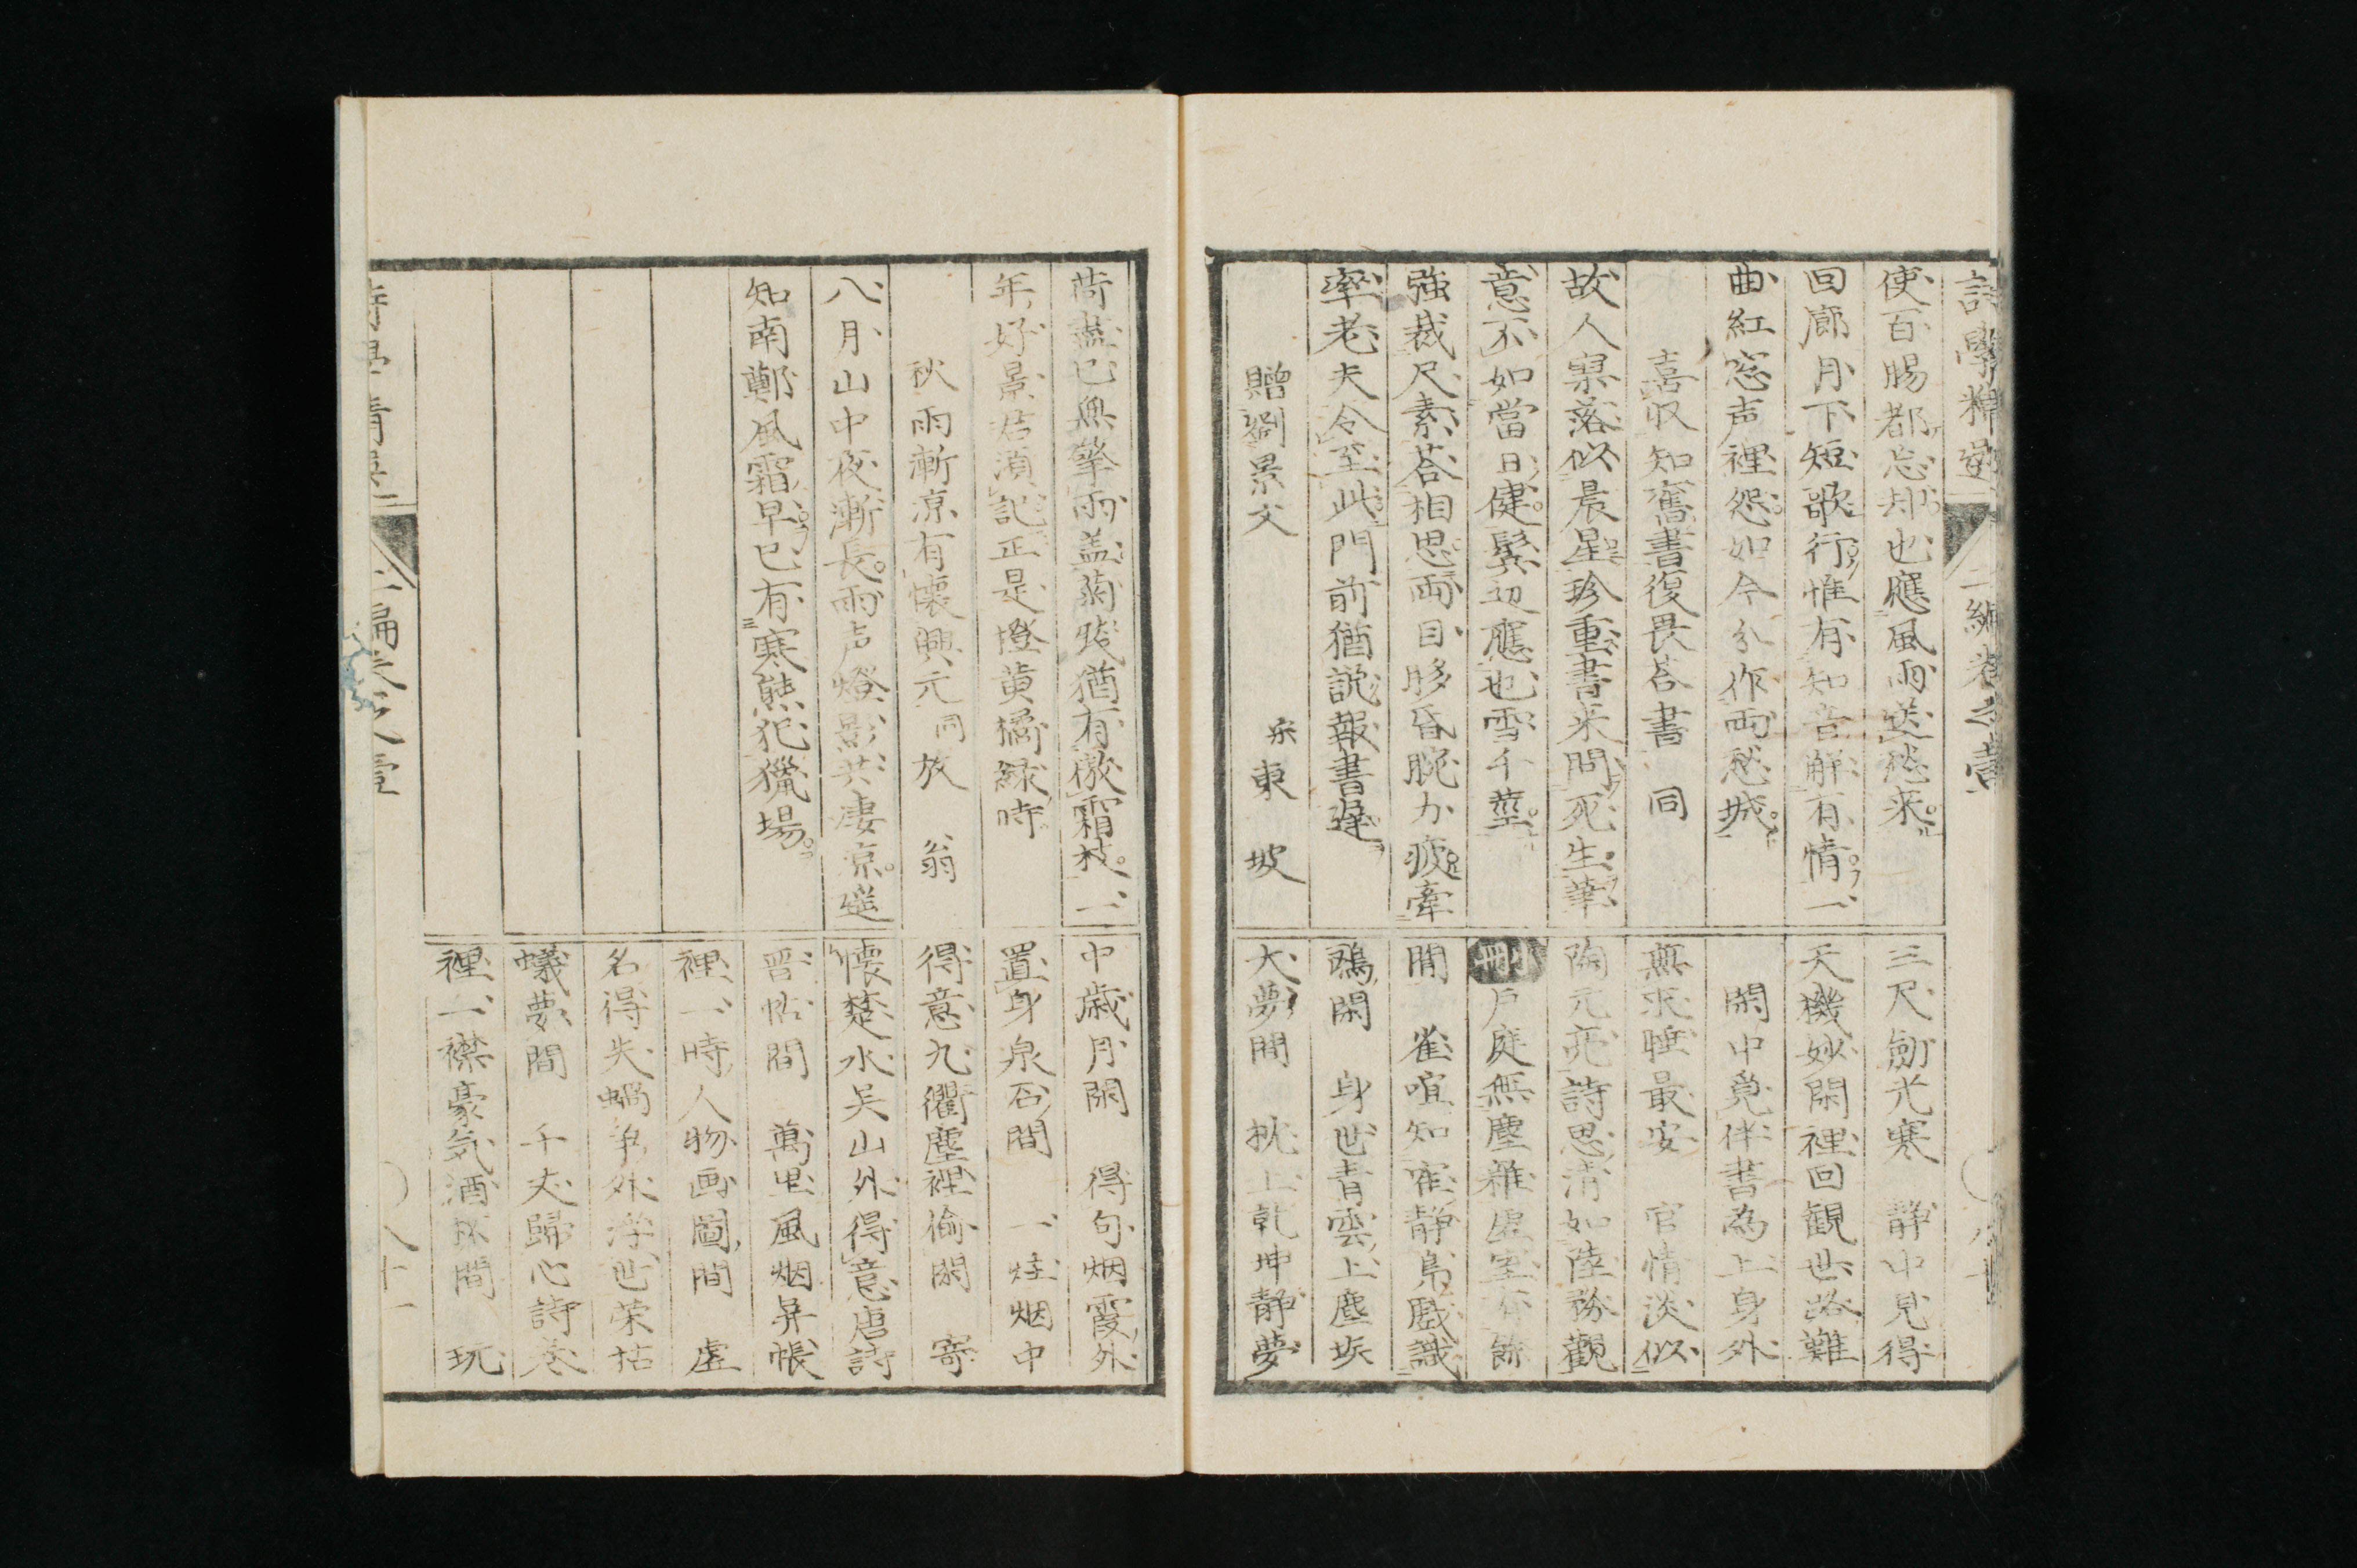 詩學精選 二編卷之壹
使百賜都忘却也應風雨送愁来
回廊月下短歌行惟有知音解有情一
曲紅窓声裡怨如今分作両愁城
喜収知舊書復畏荅書 同
故人寥落似晨星珍重書来問死生筆
意不如當日健鬂辺應也雪千莖
強裁尺素荅相思両目眵昏腕力疲牽
率老夫令至此門前猶説報書遅
贈劉景文 宋東坡
三尺劔光寒 静中見得
天機妙閑裡回観世路難
閑中覓伴書為上身外
無求睡最安 官情淡似
陶元亮詩思清如陸務觀
刪 戸庭無塵雜虚室有餘
閒 雀喧知寉静鳬戯識
鷗閑 身世青雲上塵垢
大夢間 枕上乾坤静夢
荷盡已無擎雨盖菊残猶有傲霜枝一
年好景君須記正是橙黄橘緑時
秋雨漸凉有懷興元 同放翁
八月山中夜漸長雨声燈影共凄凉遥
知南鄭風霜早已有寒熊犯獵場
中歳月閑 得句烟霞外
置身泉石間 一炷烟中
得意九衢塵裡偷閑 寄
懐楚水呉山外得意唐詩
晋帖間 萬里風烟屏帳
裡一時人物画圖間 虚
名得失蝸争外浮世荣枯
蟻夢間 千丈歸心詩巻
裡一襟豪気酒杯間 玩
八十一